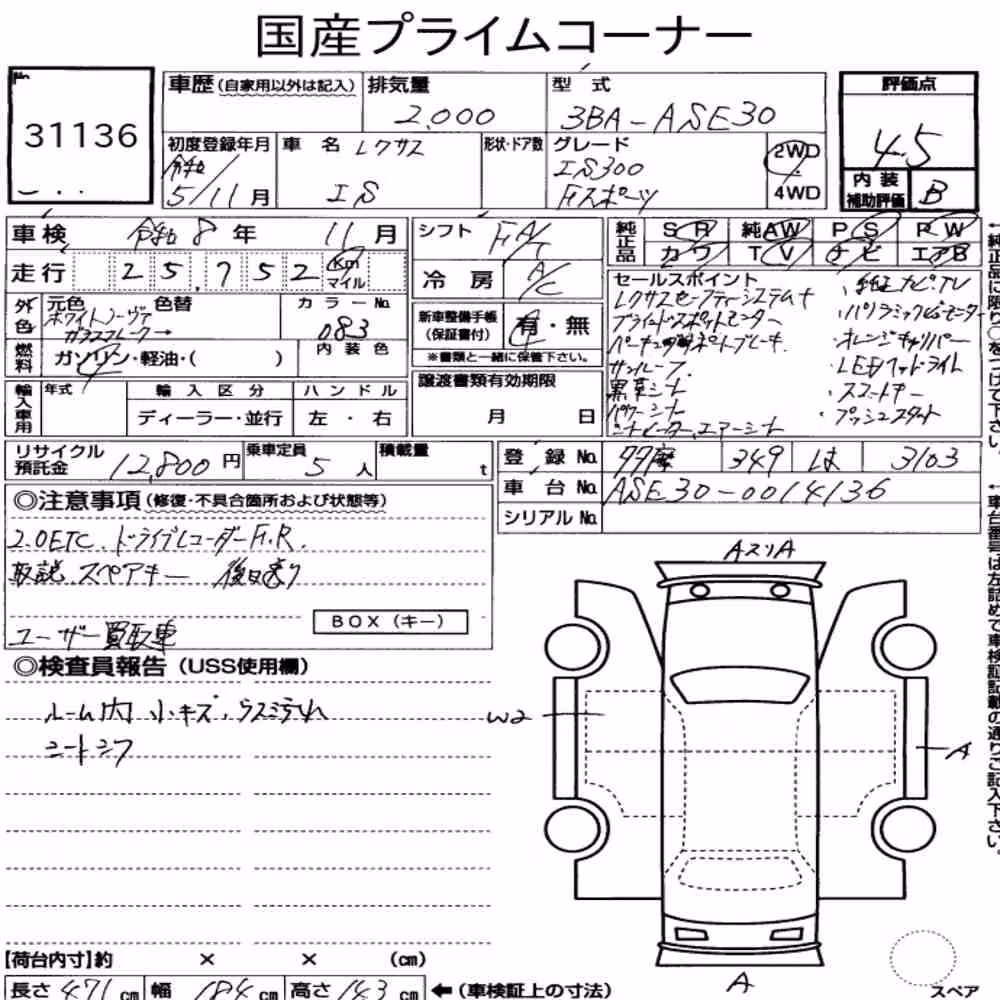 国産プライムコーナー
No.
31136
車歴(自家用以外は記入)
排気量
2,000
型式
3BA-ASE30
評価点
4.5
初度登録年月
令和
5/11月
車名
レクサス
IS
形状・ドア数
グレード
IS300
Fスポーツ
2WD
4WD
内装
補助評価
B
車検
令和8年 11月
シフト
FA/T
純正品
SR 純AW PS PW
カワ TV ナビ エアB
走行
25,752
Km
マイル
冷房
A/C
外色
元色
ホワイトノーヴァ
ガラスフレーク
色替
→
カラーNo.
083
燃料
ガソリン・軽油・( )
内装色
新車整備手帳
(保証書付)
有・無
※書類と一緒に保管下さい。
セールスポイント
レクサスセーフティシステム+
ブラインドスポットモニター
パーキングサポートブレーキ
サンルーフ
黒革シート
パワーシート
シートヒーター、エアーシート
・純正ナビTV
・パノラミックビューモニター
・オレンジキャリパー
・LEDヘッドライト
・スマートキー
・プッシュスタート
輸入車用
年式
輸入区分
ディーラー・並行
ハンドル
左・右
譲渡書類有効期限
月 日
リサイクル
預託金
12,800円
乗車定員
5人
積載量
t
登録No.
349 は 3103
車台No.
ASE30-0014136
シリアルNo.
◎注意事項(修復・不具合箇所および状態等)
2.0ETC、ドライブレコーダーF.R.
取説 スペアキー 後日送り
BOX(キー)
ユーザー買取車
◎検査員報告(USS使用欄)
ルーム内 小キズ、ウスミテリレ
シートシワ
AスリA
W2
A
A
スペア
【荷台内寸】約 × × (cm)
長さ 471cm 幅 184cm 高さ 143cm ←(車検証上の寸法)
←純正品に限り○をつけて下さい。
←車台番号は左詰めで車検証記載の通りご記入下さい。